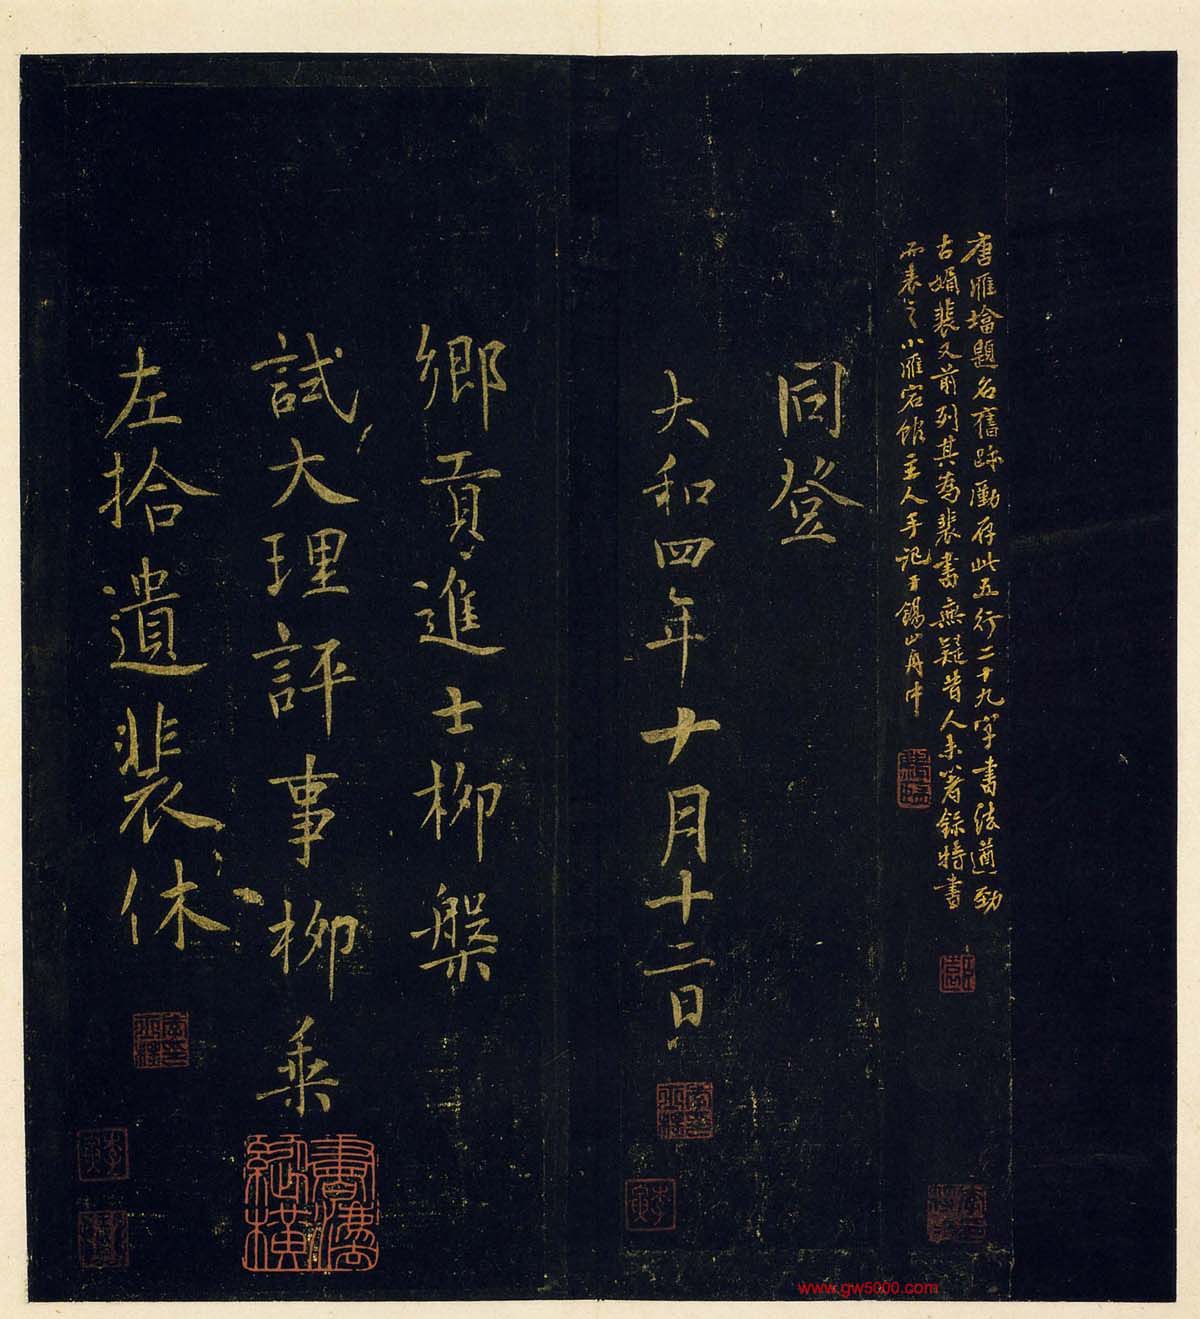 唐雁塔題名舊跡存此五行二十九字書法遒勁
古媚裴又前列其為裴書無疑昔人未箸錄特書
而表之小雁宕館主人手記于錫山舟中
左拾遺裴休
試大理評事柳乘
鄉貢進士柳槃
大和四年十月十二日
同登
書灋縱橫
www.gw5000.com